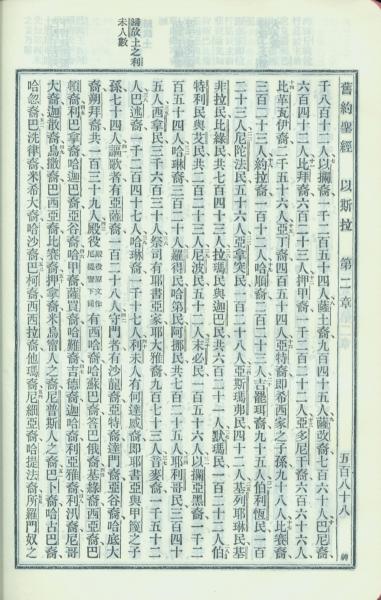 舊約聖經 以斯拉 第二章 五百八十八
千八百十二人以攔裔一千二百五十四人薩土裔九百四十五人薩改裔七百六十人巴尼裔
六百四十二人比拜裔六百二十三人押甲裔一千二百二十二人亞多尼干裔六百六十六人
比革瓦伊裔二千五十六人亞丁裔四百五十四人亞特裔即希西家之子孫九十八人比賽裔
三百二十三人約拉裔一百十二人哈順裔二百二十三人吉罷珥裔九十五人伯利恆民一百
二十三人尼陀法民五十六人亞拿突民一百二十八人亞斯瑪弗民四十二人基列耶琳民基
非拉民比綠民共七百四十三人拉瑪民與迦巴民共六百二十一人默瑪民一百二十二人伯
特利民與艾民共二百二十三人尼波民五十二人末必民一百五十六人以攔亞黑裔一千二
百五十四人哈琳裔三百二十人羅得民哈第民阿挪民共七百二十五人耶利哥民三百四十
五人西拿民三千六百三十人祭司有耶書亞家耶大雅裔九百七十三人音麥裔一千五十二
歸故土之利
未人數
人巴裔一千二百四十七人哈琳裔一千十七人利未人有何達威裔即耶書亞與甲篾之子
孫七十四人謳歌者有亞薩裔一百二十八人守門者有沙龍裔亞特裔達們裔亞谷裔哈底大
裔朔拜裔共一百三十九人殿役殿役原文尼提寧下同有西哈裔哈蘇巴裔答巴俄裔基綠裔西亞裔巴
頓裔利巴拿裔哈迦巴裔亞谷裔哈甲裔薩買裔哈難裔吉德裔迦哈裔利亞雅裔利汛裔尼哥
大裔迦散裔烏撒裔巴西亞裔比賽裔押拿裔米烏寧人之裔尼普斯人之裔巴卜裔哈古巴裔
哈忽裔巴洗律裔米希大裔哈沙裔巴柯裔西西拉裔他瑪裔尼細亞裔哈提法裔所羅門奴之